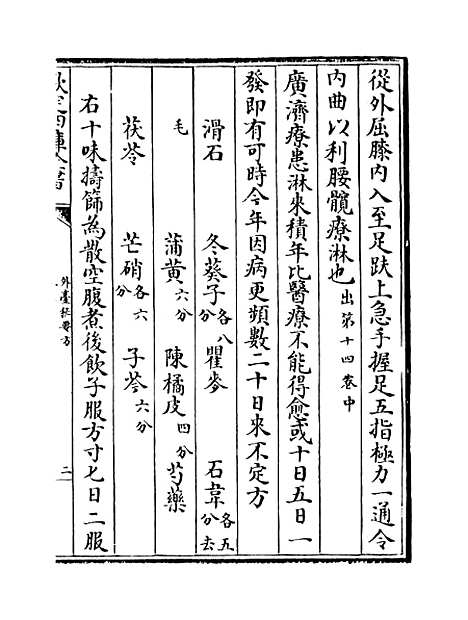 從外屈膝内入至足趺上急手握足五指極力一通令
内曲以利腰髖療淋也出第十四卷中
廣濟療患淋來積年比醫療不能得愈或十日五日一
發即有可時今年因病更頻數二十日來不定方
滑石 冬葵子各八分 瞿麥 石韋各五分去
毛 蒲黄六分 陳橘皮四分 芍藥
茯苓 芒硝各六分 子芩六分
右十味擣篩為散空腹煮後飲子服方寸七日二服
欽定四庫全書
外臺秘要方
二